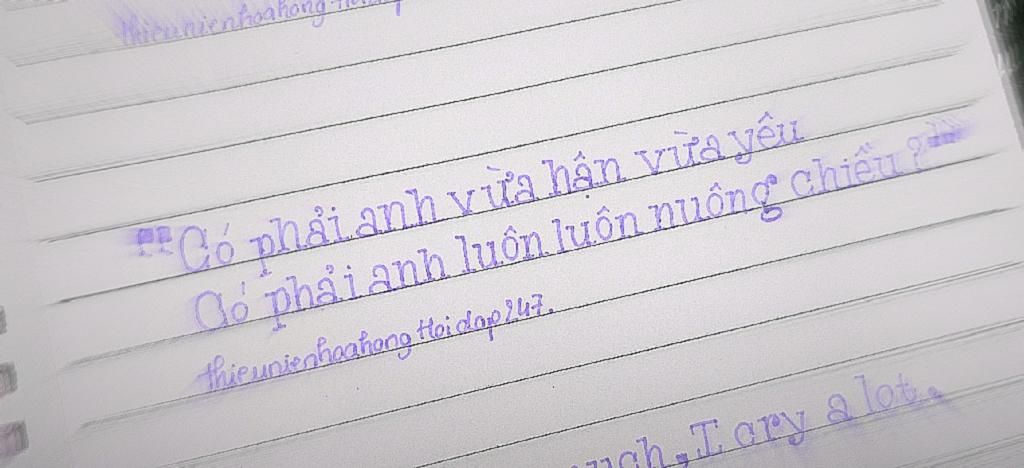 thieunienhoahong
"Có phải anh vừa hận vừa yêu
Có phải anh luôn luôn nuông chiều?"
thieunienhoahong Hoidap247.
I cry a lot.